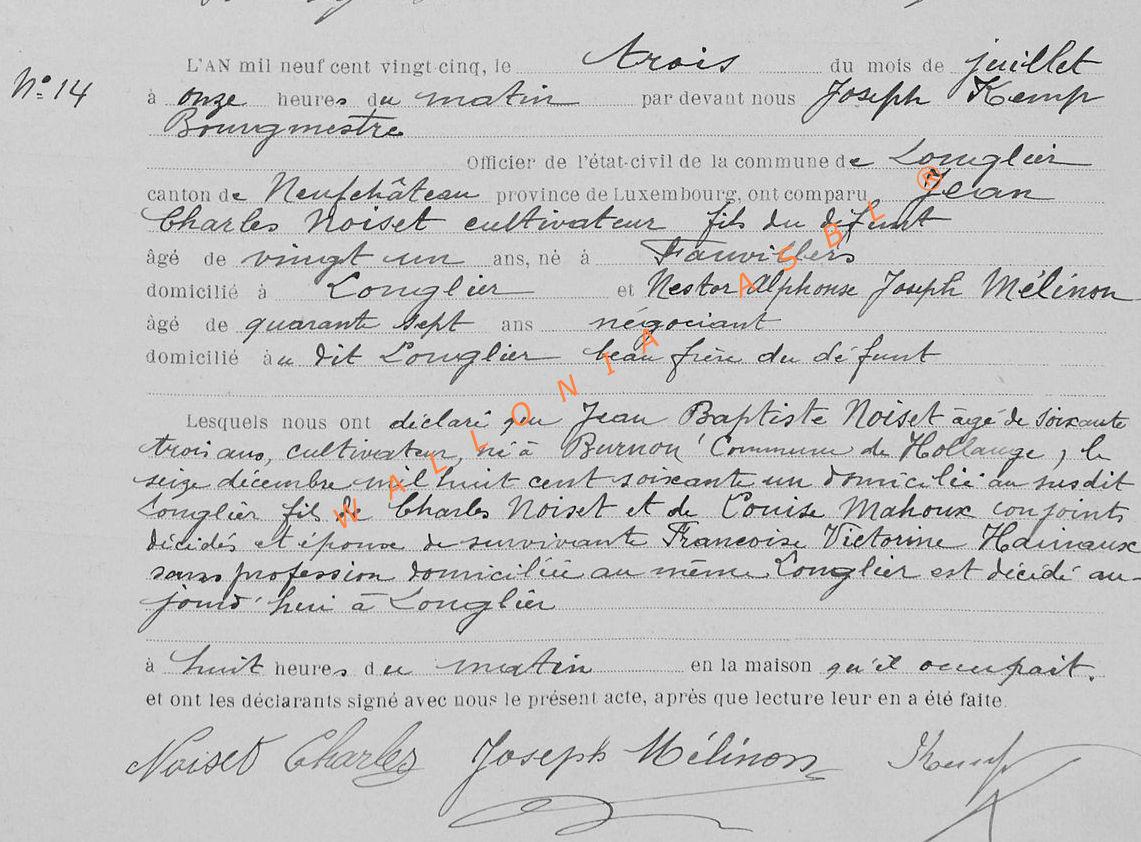 L'AN mil neuf cent vingt-cinq, le trois du mois de juillet
N° 14
à onze heures du matin par devant nous Joseph Kemp
Bourgmestre
Officier de l'état-civil de la commune de Longlier
canton de Neufchâteau province de Luxembourg, ont comparu Jean
Charles Noiset cultivateur fils du défunt
âgé de vingt un ans, né à Fauvillers
domicilié à Longlier et Nestor Alphonse Joseph Mélinon
âgé de quarante sept ans négociant
domicilié àu dit Longlier beau frère du défunt
Lesquels nous ont déclaré que Jean Baptiste Noiset âgé de soixante
trois ans, cultivateur, né à Burnon (Commune de Hollange), le
seize décembre mil huit cent soixante un domicilié au susdit
Longlier fils de Charles Noiset et de Louise Mahoux conjoints
décédés et époux de survivante Françoise Victorine Hannaux
sans profession domiciliée au même Longlier est décédé au-
jourd'hui à Longlier
à huit heures du matin en la maison qu'il occupait.
et ont les déclarants signé avec nous le présent acte, après que lecture leur en a été faite.
Noiset Charles Joseph Mélinon Kemp
WALLONIA ASBL ®